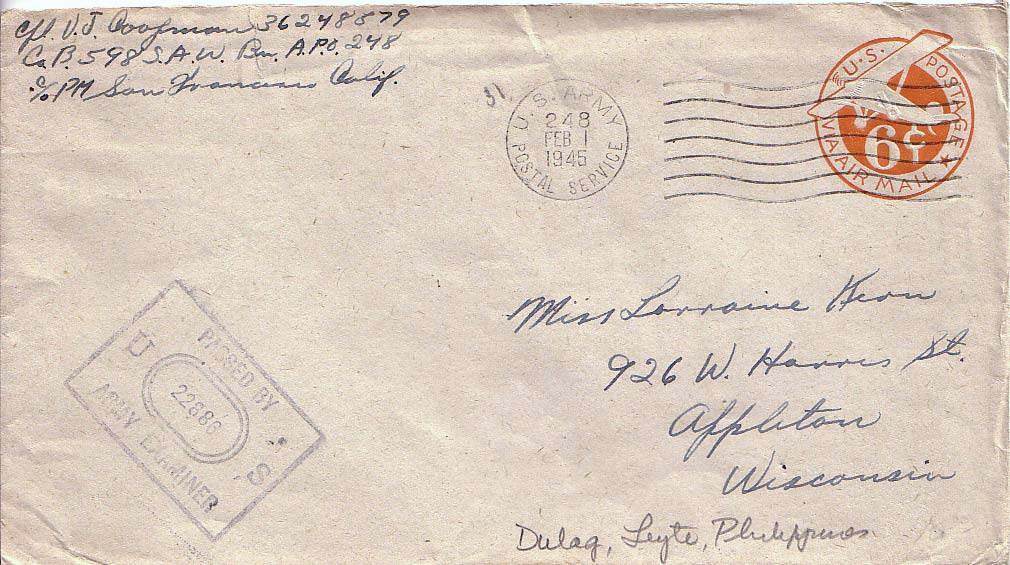 Cpl. V. J. Coopman 36248579
Co B. 598 S.A.W. Bn. A.P.O. 248
c/o PM San Francisco Calif.
U.S. ARMY
248
FEB 1
1945
POSTAL SERVICE
U.S. POSTAGE
6¢
VIA AIR MAIL
Miss Lorraine Kern
926 W. Harris St.
Appleton
Wisconsin
PASSED BY
U S
22886
ARMY EXAMINER
Dulag, Leyte, Philippines